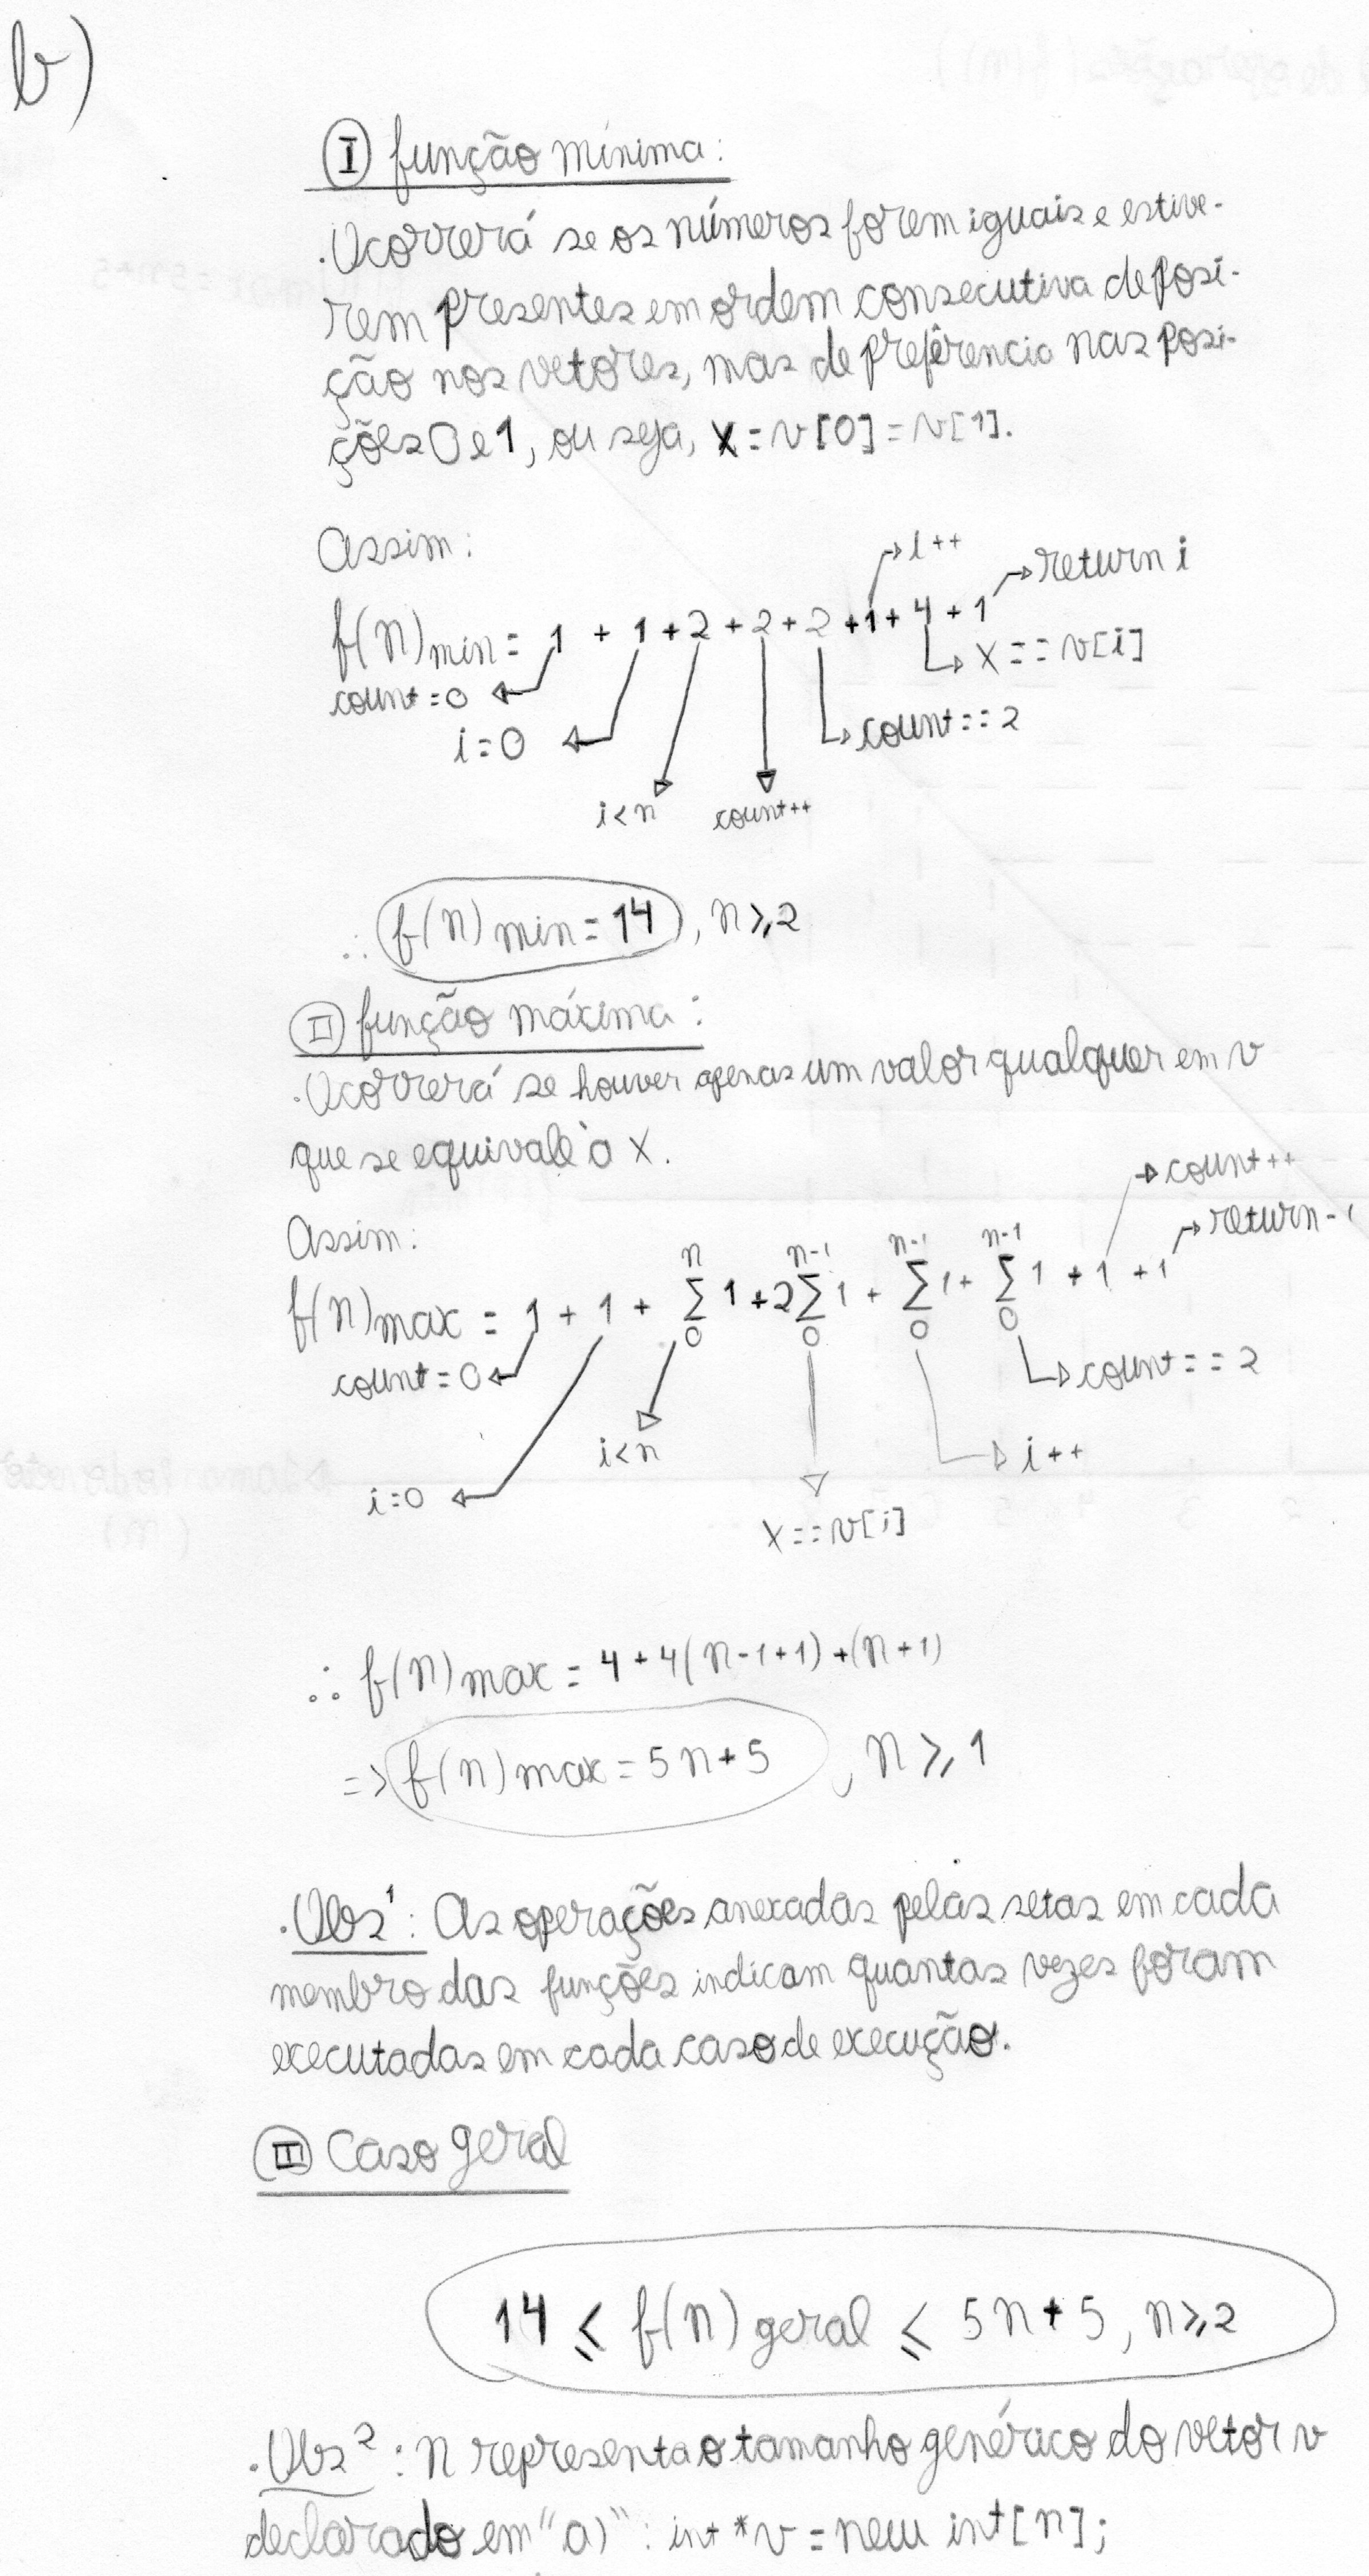 b)
I função mínima:
.Ocorrerá se os números forem iguais e estive-
rem presentes em ordem consecutiva de posi-
ção nos vetores, mas de preferência nas posi-
ções 0 e 1, ou seja, x = v[0] = v[1].
Assim:
i++
return i
f(n) min = 1 + 1 + 2 + 2 + 2 + 1 + 4 + 1
x == v[i]
count = 0
count == 2
i = 0
i < n
count++
∴ f(n) min = 14, n ≥ 2
II função máxima:
.Ocorrerá se houver apenas um valor qualquer em v
que se equivale à x.
count++
return -1
Assim:
f(n) max = 1 + 1 + n∑0 1 + 2 n-1∑0 1 + n-1∑0 1 + n-1∑0 1 + 1 + 1
count = 0
count == 2
i < n
i++
i = 0
x == v[i]
∴ f(n) max = 4 + 4(n-1+1) + (n+1)
=> f(n) max = 5n + 5, n ≥ 1
.Obs¹: As operações anexadas pelas setas em cada
membro das funções indicam quantas vezes foram
executadas em cada caso de execução.
III Caso geral
14 ≤ f(n) geral ≤ 5n + 5, n ≥ 2
.Obs²: n representa o tamanho genérico do vetor v
declarado em "a)": int *v = new int[n];